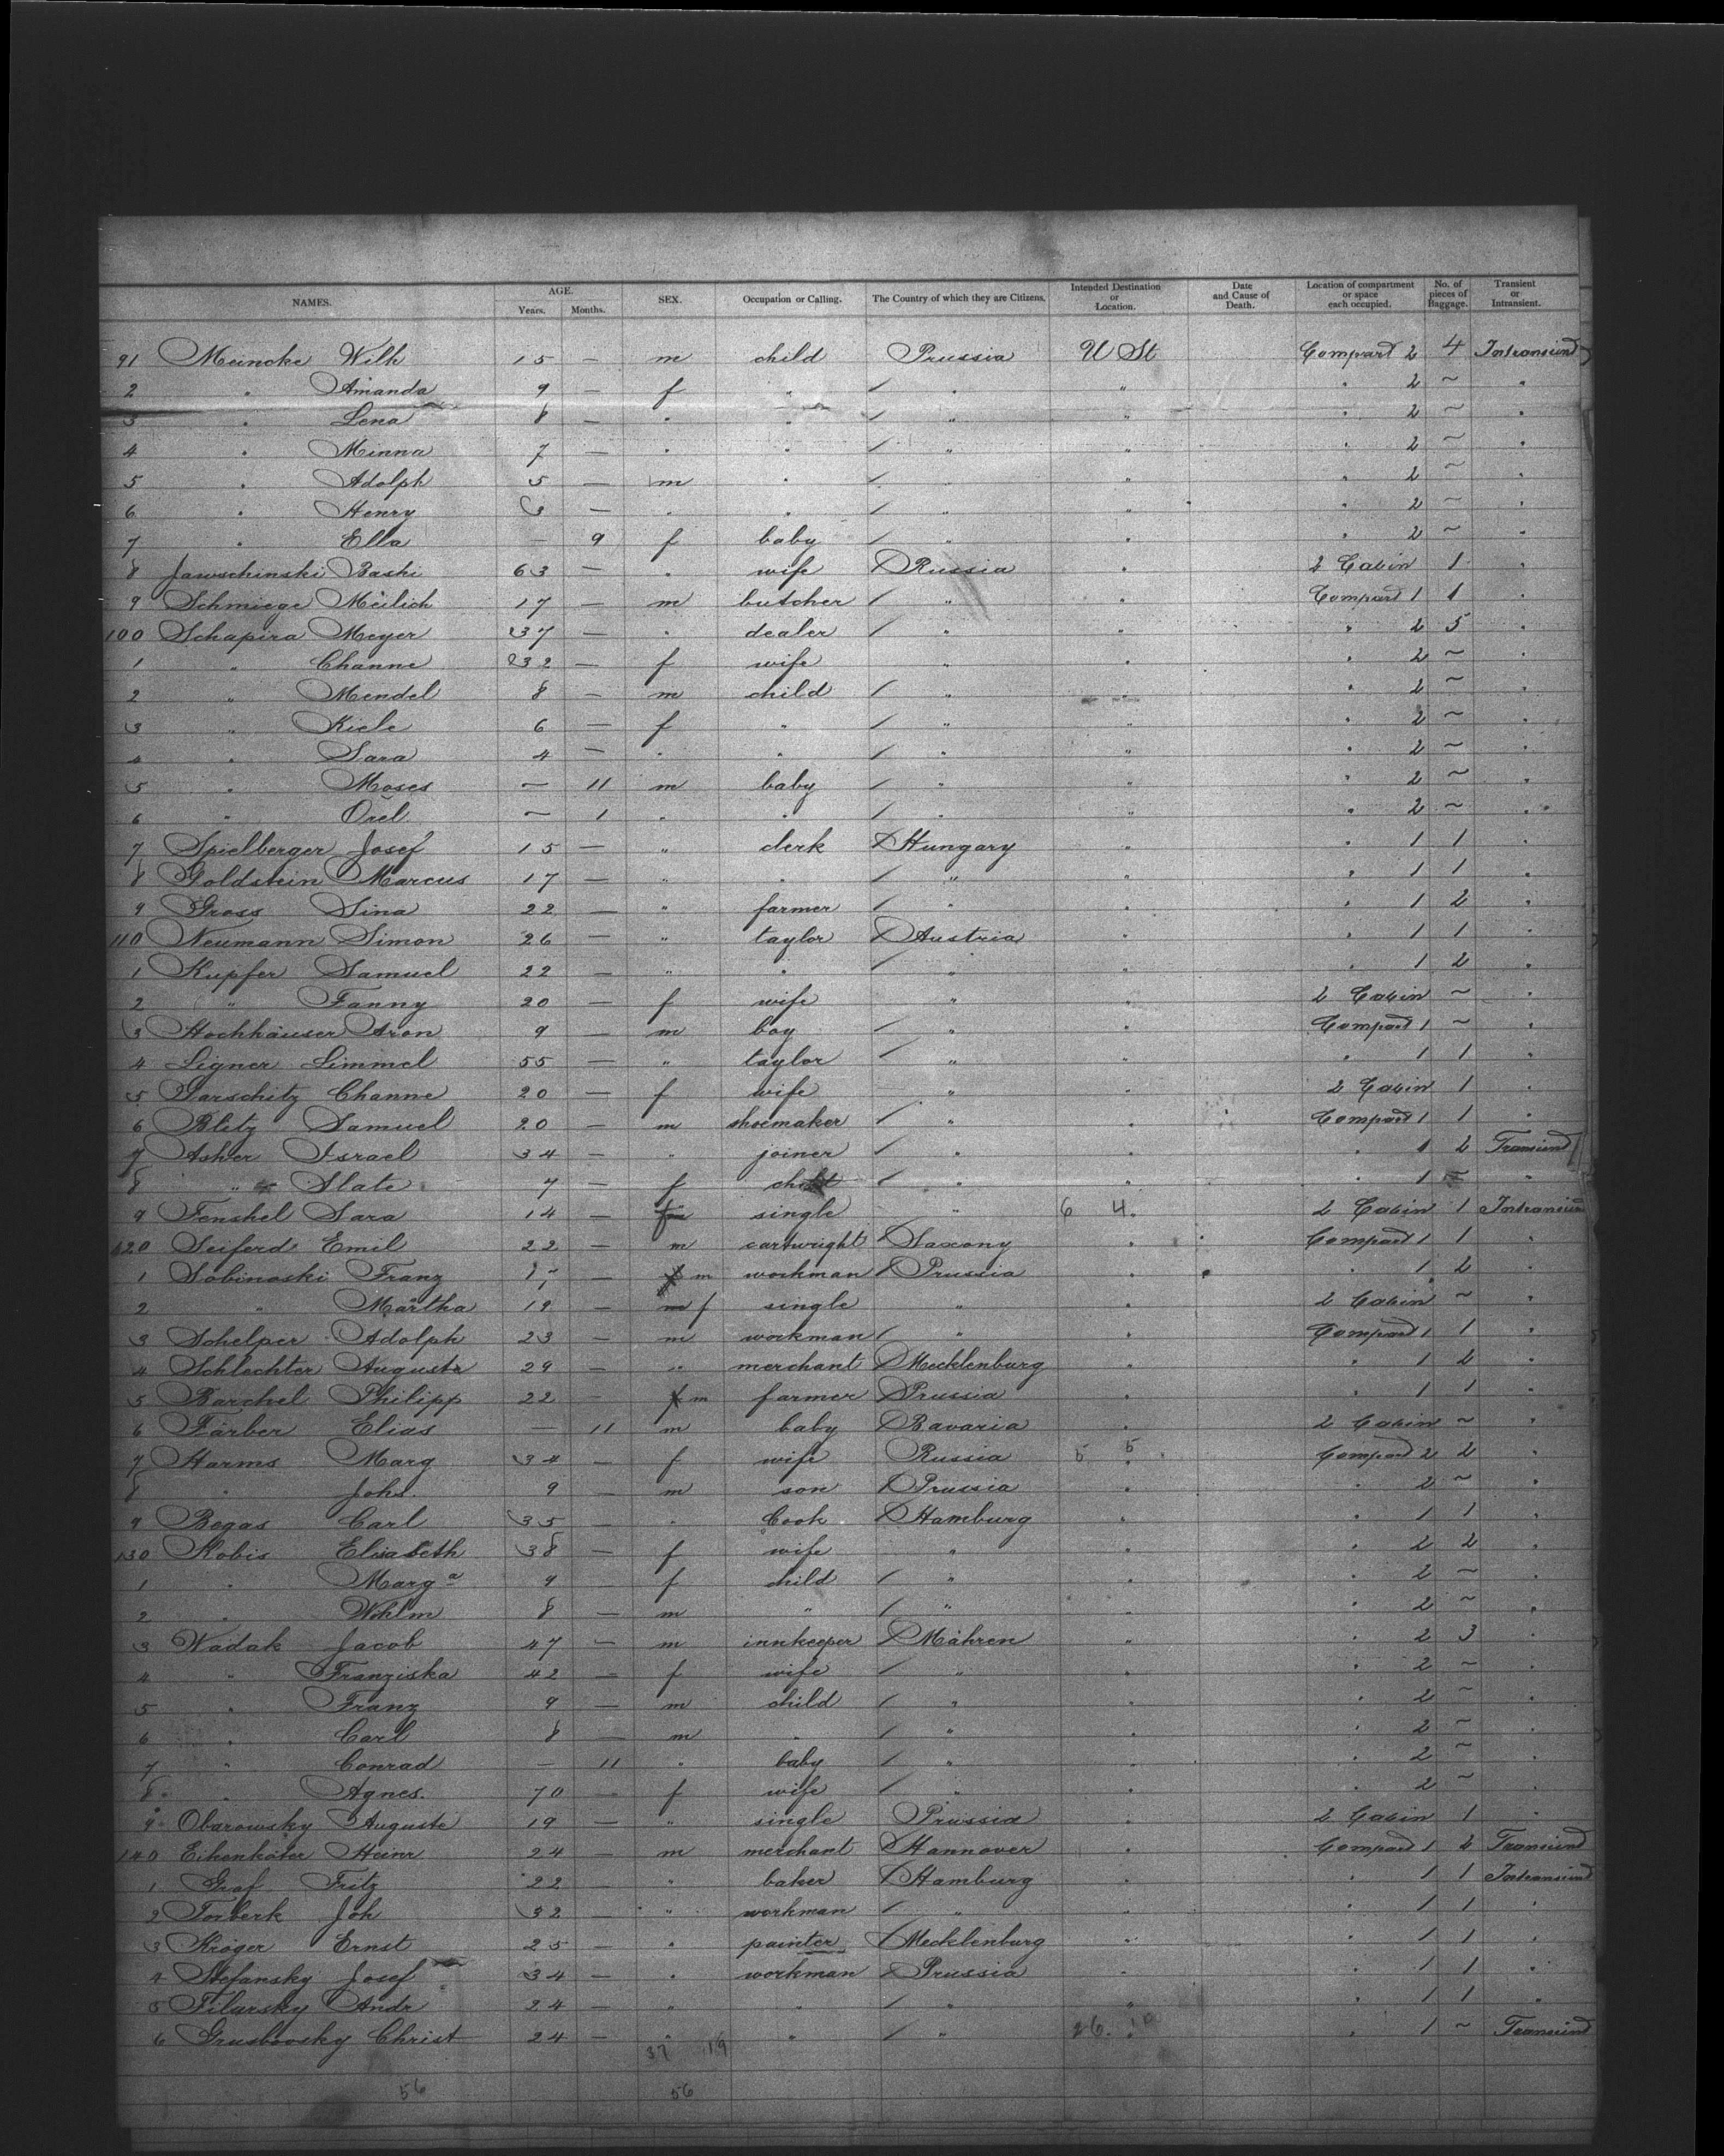 NAMES. AGE. Years. Months. SEX. Occupation or Calling. The Country of which they are Citizens. Intended Destination or Location. Date and Cause of Death. Location of compartment or space each occupied. No. of pieces of Baggage. Transient or Intransient.
91 Meincke Wilh 15 — m child Prussia U St Compart 2 4 Intransient
2 " Amanda 9 — f " / " " " 2 ~ "
3 " Lena 8 — " " / " " " 2 ~ "
4 " Minna 7 — " " / " " " 2 ~ "
5 " Adolph 5 — m " / " " " 2 ~ "
6 " Henry 3 — " " / " " " 2 ~ "
7 " Ella — 9 f baby / " " " 2 ~ "
8 Jawschinski Baski 63 — " wife Russia " 2 Cabin 1 "
9 Schmiege Meilich 17 — m butcher / " " Compart 1 1 "
100 Schapira Meyer 37 — " dealer / " " " 2 5 "
1 " Channe 32 — f wife " " " 2 ~ "
2 " Mendel 8 — m child / " " " 2 ~ "
3 " Kiele 6 — f " / " " " 2 ~ "
4 " Sara 4 — " " / " " " 2 ~ "
5 " Moses ~ 11 m baby / " " " 2 ~ "
6 " Orel ~ 1 " " / " " " 2 ~ "
7 Spielberger Josef 15 — " clerk / Hungary " " 1 1 "
8 Goldstein Marcus 17 — " " / " " " 1 1 "
9 Gross Sina 22 — " farmer / " " " 1 2 "
110 Neumann Simon 26 — " taylor / Austria " " 1 1 "
1 Kupfer Samuel 22 — " " / " " " 1 2 "
2 " Fanny 20 — f wife " " 2 Cabin ~ "
3 Hochhäuser Aron 9 — m boy / " " Compart 1 ~ "
4 Ligner Limmel 55 — " taylor / " " " 1 1 "
5 Darschitz Channe 20 — f wife " " 2 Cabin 1 "
6 Blitz Samuel 20 — m shoemaker / " " Compart 1 1 "
7 Asher Israel 34 — " joiner / " " " 1 2 Transient
8 " Slate 7 — f child / " " " 1 ~ "
9 Fenshel Sara 14 — f single " 6 4. 2 Cabin 1 Intransient
120 Seiferd Emil 22 — m cartwright / Saxony " Compart 1 1 "
1 Sobinaski Franz — m workman / Prussia " " 1 2 "
2 " Martha 19 — m f single " " 2 Cabin ~ "
3 Schelper Adolph 23 — m workman / " " Compart 1 1 "
4 Schlechter Auguste 29 — " merchant / Mecklenburg " " 1 2 "
5 Barchel Philipp 22 f m farmer / Prussia " " 1 1 "
6 Färber Elias — 11 m baby / Bavaria " 2 Cabin ~ "
7 Harms Marg 34 — f wife Russia 5 5 " Compart 2 2 "
8 " Johs. 9 — m son / Prussia " " 2 ~ "
9 Begas Carl 35 — " Cook / Hamburg " " 1 1 "
130 Kobis Elisabeth 38 — f wife " " " 2 2 "
1 " Marg a 9 — f child / " " " 2 ~ "
2 " Wihlm 8 — m " / " " " 2 ~ "
3 Wadak Jacob 47 — m innkeeper / Mähren " " 2 3 "
4 " Franziska 42 — f wife / " " " 2 ~ "
5 " Franz 9 — m child / " " " 2 ~ "
6 " Carl 8 — m " / " " " 2 ~ "
7 " Conrad — 11 " baby / " " " 2 ~ "
8 " Agnes. 70 — f wife / " " " 2 ~ "
9 Obarowsky Auguste 19 — " single Prussia " 2 Cabin 1 "
140 Eikenkäter Heinr 24 — m merchant / Hannover " Compart 1 2 Transient
1 Graf Fritz 22 — " baker / Hamburg " " 1 1 Intransient
2 Torberk Joh 32 — " workman / " " " 1 1 "
3 Kröger Ernst 25 — " painter / Mecklenburg " " 1 1 "
4 Stefansky Josef 34 — " workman / Prussia " " 1 1 "
5 Filarsky Andr 24 — " " / " " " 1 1 "
6 Grusbovsky Christ 24 — " " / " 26. 10 " 1 ~ Transient
37 19
56 56